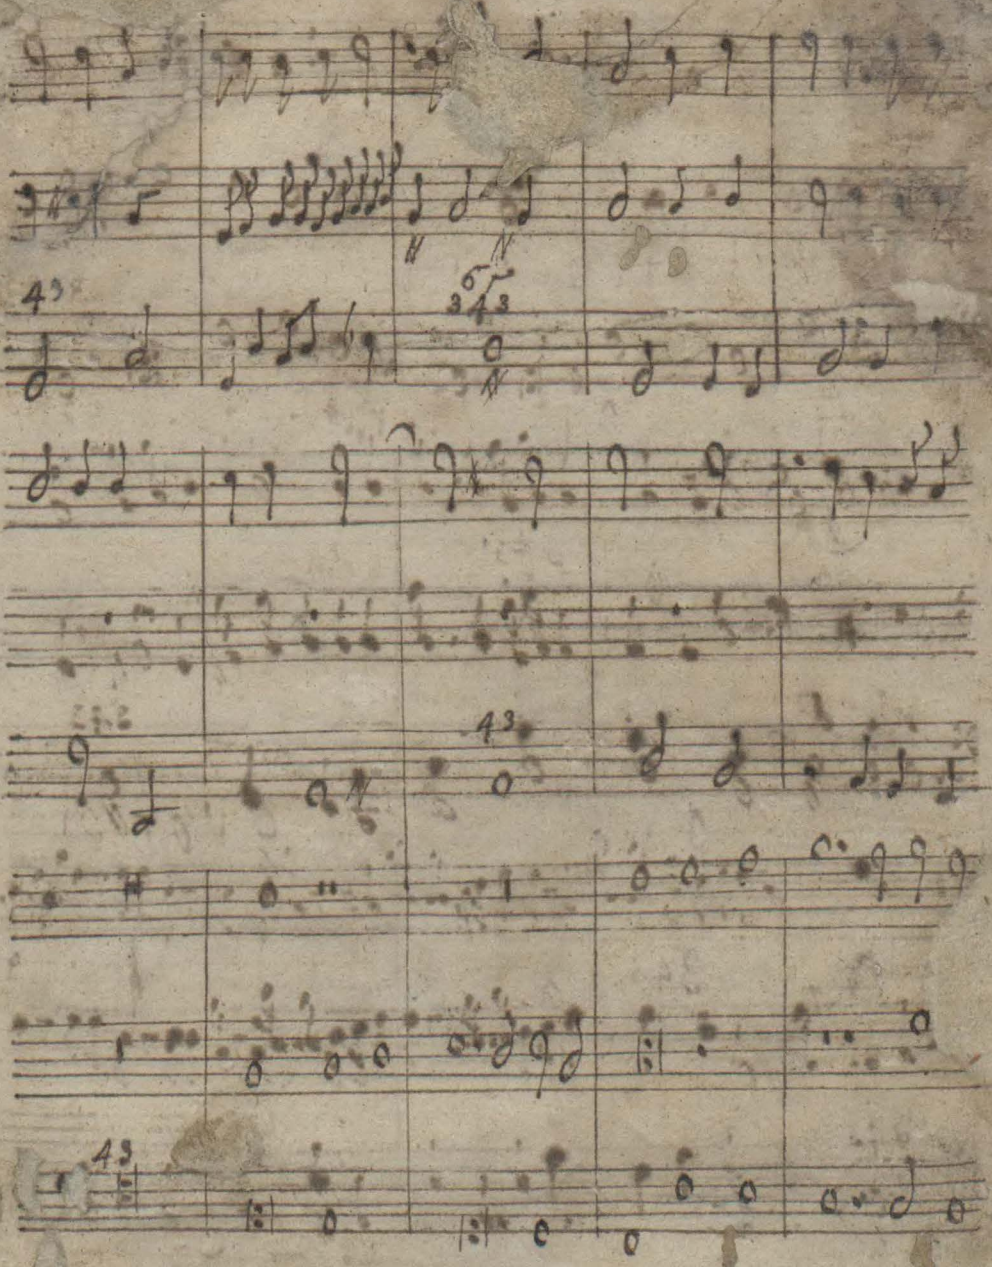 43
65
343
43
43